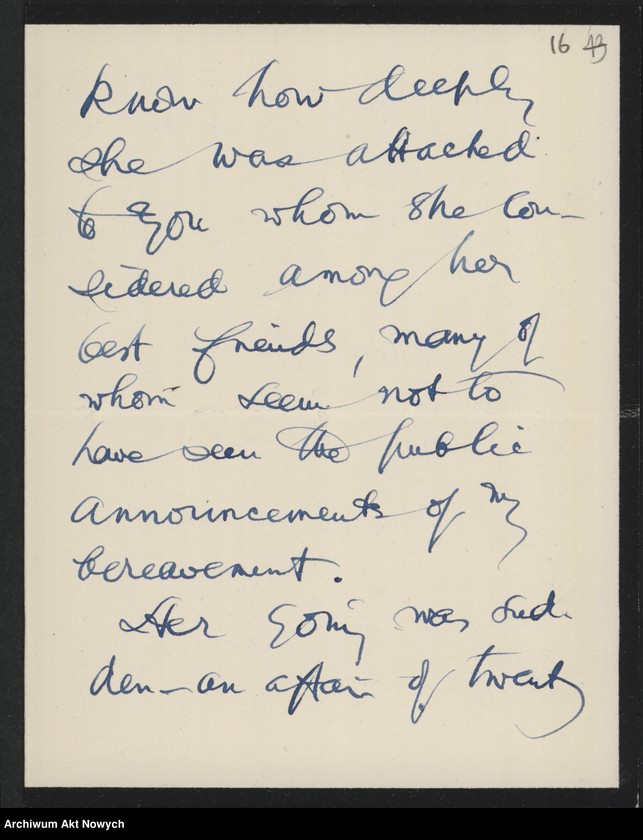 16 43
know how deeply
she was attached
to you whom she con-
sidered among her
best friends, many of
whom seem not to
have seen the public
announcements of my
bereavement.
Her going was sud-
den—an affair of twenty
Archiwum Akt Nowych